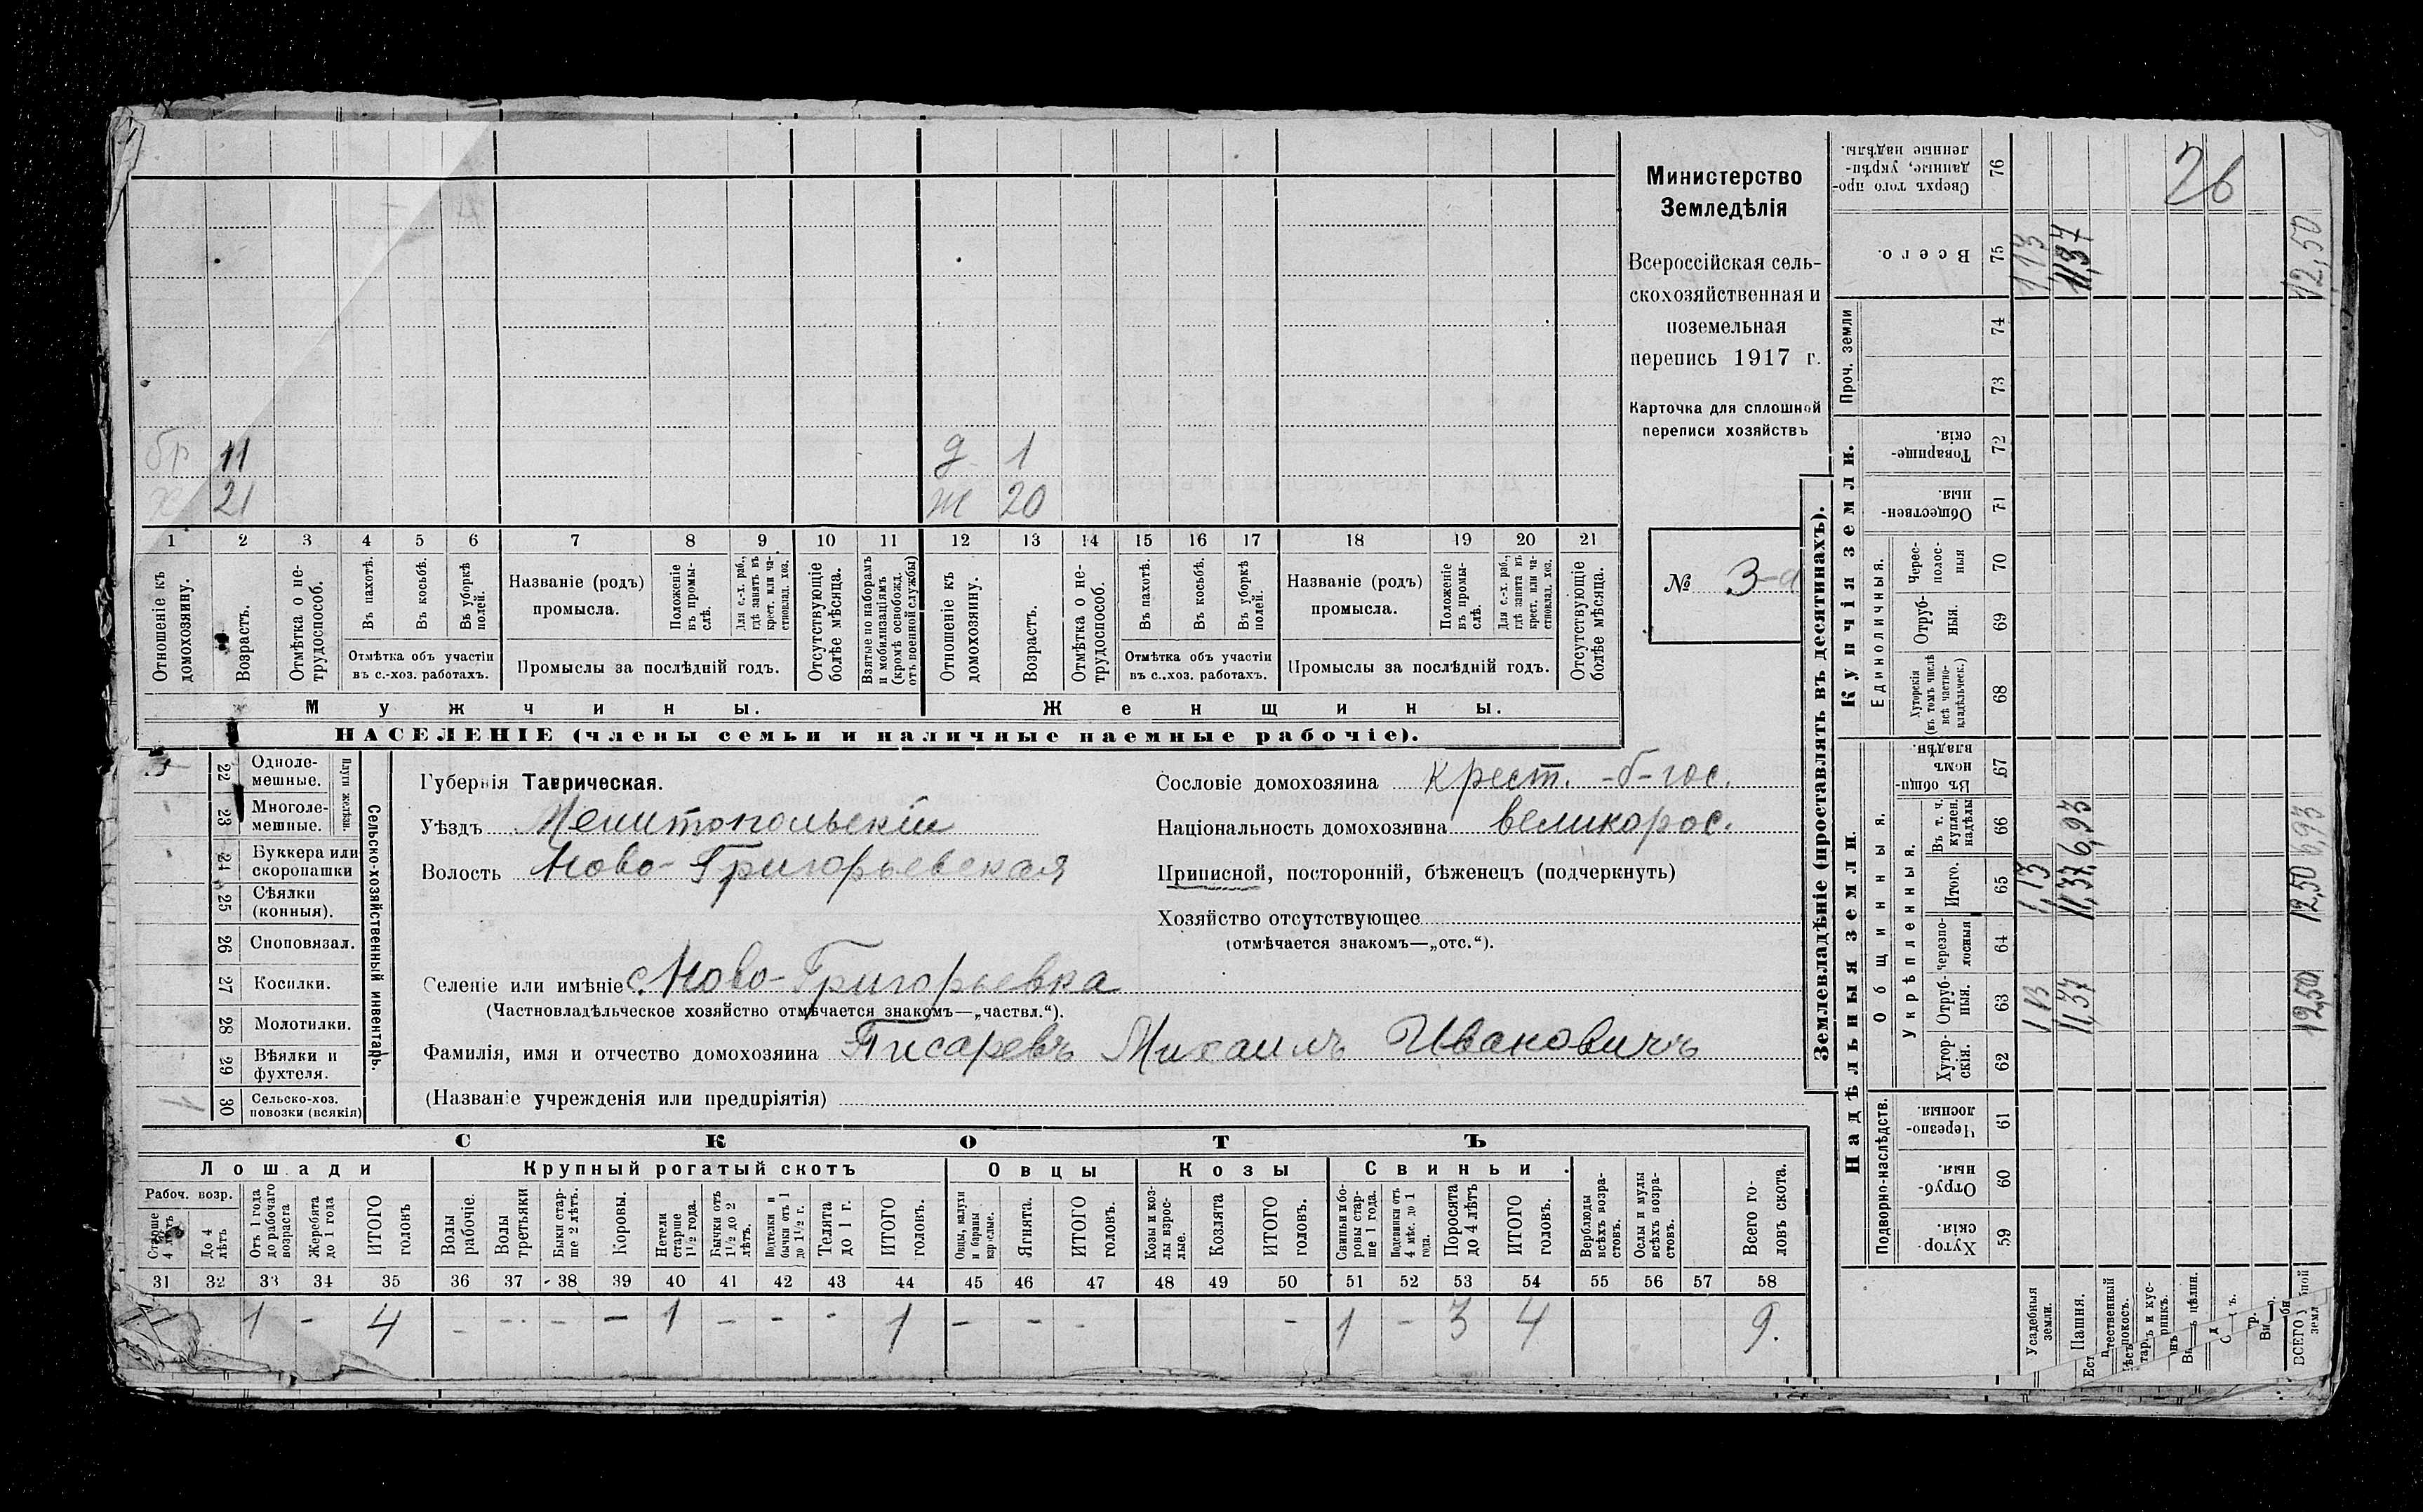 бр 11 д 1
х 21 ж 20
1 2 3 4 5 6 7 8 9 10 11 12 13 14 15 16 17 18 19 20 21
Отношеніе къ домохозяину.
Возрастъ.
Отмѣтка о не-трудоспособ.
Въ пахотѣ.
Въ косьбѣ.
Въ уборкѣ полей.
Отмѣтка объ участіи
въ с.-хоз. работахъ.
Названіе (родъ)
промысла.
Положеніе въ промы-слѣ.
Для с.-х. раб., гдѣ занятъ въ крест. или ча-стновлад. хоз.
Промыслы за послѣдній годъ.
Отсутствующіе болѣе мѣсяца.
Взятые по наборамъ и мобилизаціямъ (кромѣ освобожд. отъ военной службы)
Отношеніе къ домохозяину.
Возрастъ.
Отмѣтка о не-трудоспособ.
Въ пахотѣ.
Въ косьбѣ.
Въ уборкѣ полей.
Отмѣтка объ участіи
въ с..хоз. работахъ.
Названіе (родъ)
промысла.
Положеніе въ промы-слѣ.
Для с.-х. раб., гдѣ занята въ крест. или ча-стновлад. хоз.
Промыслы за послѣдній годъ.
Отсутствующіе болѣе мѣсяца.
Мужчины. Женщины.
НАСЕЛЕНІЕ (члены семьи и наличные наемные рабочіе).
Министерство
Земледѣлія
Всероссійская сель-
скохозяйственная и
поземельная
перепись 1917 г.
Карточка для сплошной
переписи хозяйствъ
№ 3-а
22 Одноле-мешные.
23 Многоле-мешные.
Плуги желѣзн.
24 Буккера или скоропашки
25 Сѣялки (конныя).
26 Сноповязал.
27 Косилки.
28 Молотилки.
29 Вѣялки и фухтеля.
30 Сельско-хоз. повозки (всякія) 1
Сельско-хозяйственный инвентарь.
Губернія Таврическая.
Уѣздъ Мелитопольскій
Волость Ново-Григорьевская
Сословіе домохозяина крест. -б-гос.
Національность домохозяина великорос.
Приписной, посторонній, бѣженецъ (подчеркнуть)
Хозяйство отсутствующее
(отмѣчается знакомъ—„отс.“).
Селеніе или имѣніе с. Ново-Григорьевка
(Частновладѣльческое хозяйство отмѣчается знакомъ—„частвл.“).
Фамилія, имя и отчество домохозяина Писаревъ Михаилъ Ивановичъ
(Названіе учрежденія или предпріятія)
СКОТЪ
Лошади Крупный рогатый скотъ Овцы Козы Свиньи.
Рабоч. возр.
Старше 4 лѣтъ
До 4 лѣтъ
Отъ 1 года до рабочаго возраста
Жеребята до 1 года
ИТОГО головъ
Волы рабочіе.
Волы третьяки
Быки стар-ше 2 лѣтъ.
Коровы.
Нетели старше 1½ года.
Бычки отъ 1½ до 2 лѣтъ.
Подтелки и бычки отъ 1 до 1½ г.
Телята до 1 г.
ИТОГО головъ.
Овцы, валухи и бараны взрослые.
Ягнята.
ИТОГО головъ.
Козы и коз-лы взрос-лые.
Козлята
ИТОГО головъ.
Свиньи и бо-ровы стар-ше 1 года.
Подсвинки отъ 4 мѣс. до 1 года.
Поросята до 4 лѣтъ
ИТОГО головъ.
Верблюды всѣхъ возра-стовъ.
Ослы и мулы всѣхъ возра-стовъ.
Всего го-ловъ скота.
31 32 33 34 35 36 37 38 39 40 41 42 43 44 45 46 47 48 49 50 51 52 53 54 55 56 57 58
1 - 4 - - - - 1 - - - 1 - - - - 1 - 3 4 9.
Землевладѣніе (проставлять въ десятинахъ).
Надѣльныя земли. Купчія земли. Проч. земли
Подворно-наслѣдств. Общинныя. Укрѣпленныя. Единоличныя.
Хутор-скія. 59
Отруб-ныя. 60
Черезпо-лосныя. 61
Хутор-скія. 62
Отруб-ныя. 63
Черезпо-лосныя 64
Итого. 65
Въ т. ч. куплен. надѣлы 66
Въ общи-номъ владѣн. 67
Хуторскія (въ томъ числѣ всѣ частно-владѣльческ.) 68
Отруб-ныя. 69
Черес-полос-ныя 70
Обществен-ныя. 71
Товарище-скія. 72
73
74
Всего. 75
Сверхъ того про-данные, укрѣп-ленные надѣлы. 76
Усадебныя земли. 1,13 1,13 1,13
Пашня. 11,37 11,37 6,93 11,37
ВСЕГО 12,50 12,50 6,93 12,50
2в